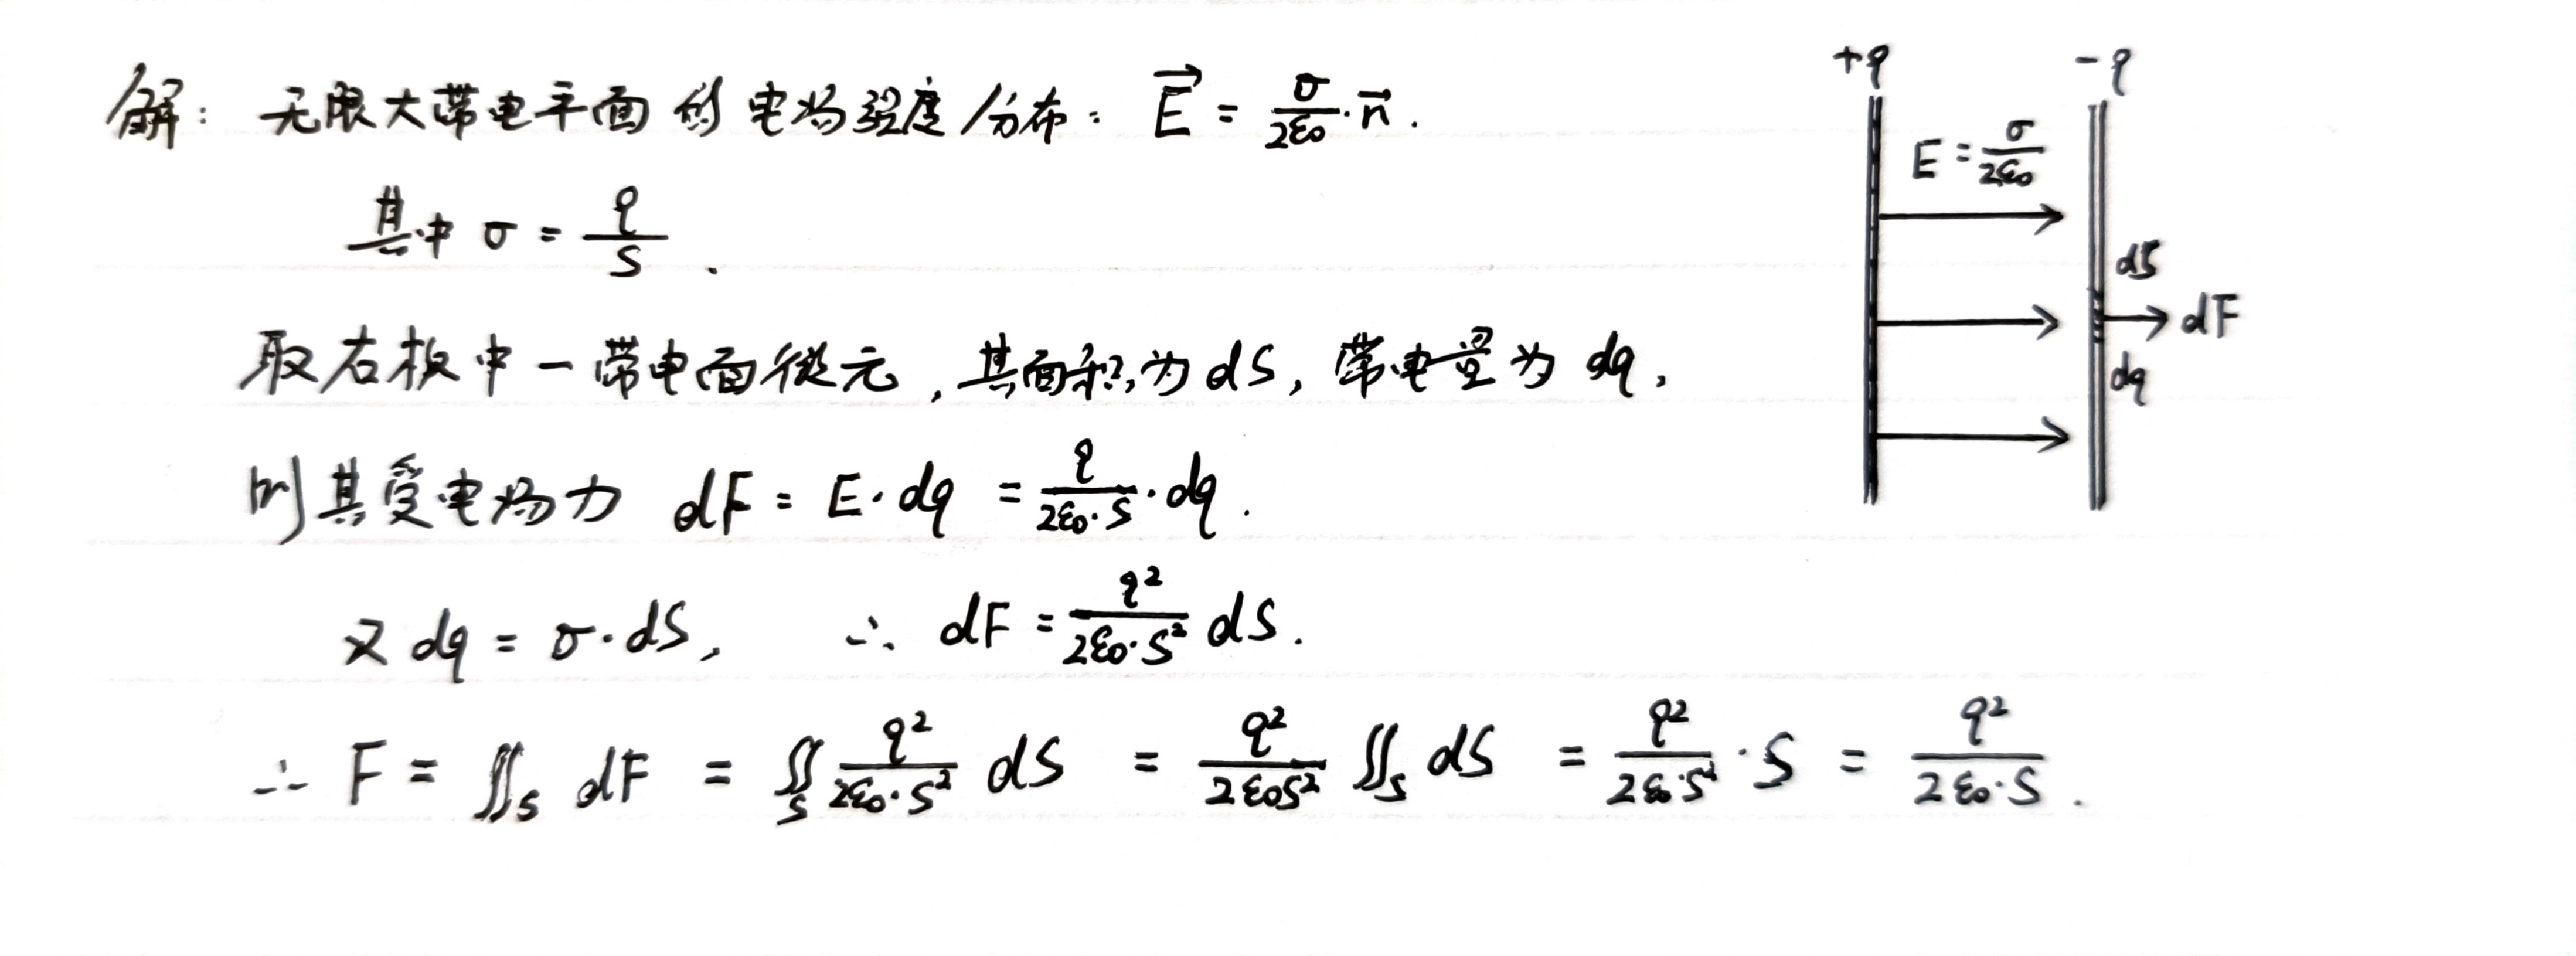 解：无限大带电平面的电场强度分布：$\vec{E} = \frac{\sigma}{2\varepsilon_0} \cdot \vec{n}$.
其中 $\sigma = \frac{q}{S}$.
取右板中一带电面微元，其面积为 dS，带电量为 dq，
则其受电场力 $dF = E \cdot dq = \frac{q}{2\varepsilon_0 \cdot S} \cdot dq$.
又 $dq = \sigma \cdot dS$，  $\therefore dF = \frac{q^2}{2\varepsilon_0 \cdot S^2} dS$.
$\therefore F = \iint_S dF = \iint_S \frac{q^2}{2\varepsilon_0 \cdot S^2} dS = \frac{q^2}{2\varepsilon_0 S^2} \iint_S dS = \frac{q^2}{2\varepsilon_0 \cdot S^2} \cdot S = \frac{q^2}{2\varepsilon_0 \cdot S}$.
+q -q
$E = \frac{\sigma}{2\varepsilon_0}$
dS
dF
dq